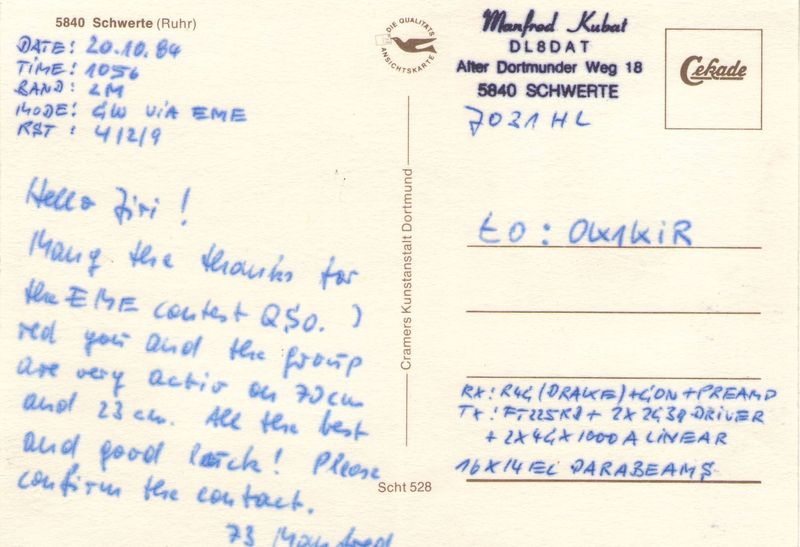 5840 Schwerte (Ruhr)
DATE: 20.10.84
TIME: 1056
BAND: 2M
MODE: CW VIA EME
RST: 4/2/9
Hello Jiri!
Many the thanks for
the EME contest QSO. J
red you and the group
are very activ on 70cm
and 23 cm. All the best
and good luck! Please
confirm the contact.
73 Manfred
DIE QUALITÄTS
ANSICHTSKARTE
Cramers Kunstanstalt Dortmund
Scht 528
Manfred Kubat
DL8DAT
Alter Dortmunder Weg 18
5840 SCHWERTE
7031 HL
Cekade
to: OK1KIR
RX: R4C (DRAKE) + CON + PREAMP
TX: FT225RD + 2X2C39 DRIVER
+ 2X4CX1000A LINEAR
16X14El PARABEAMS